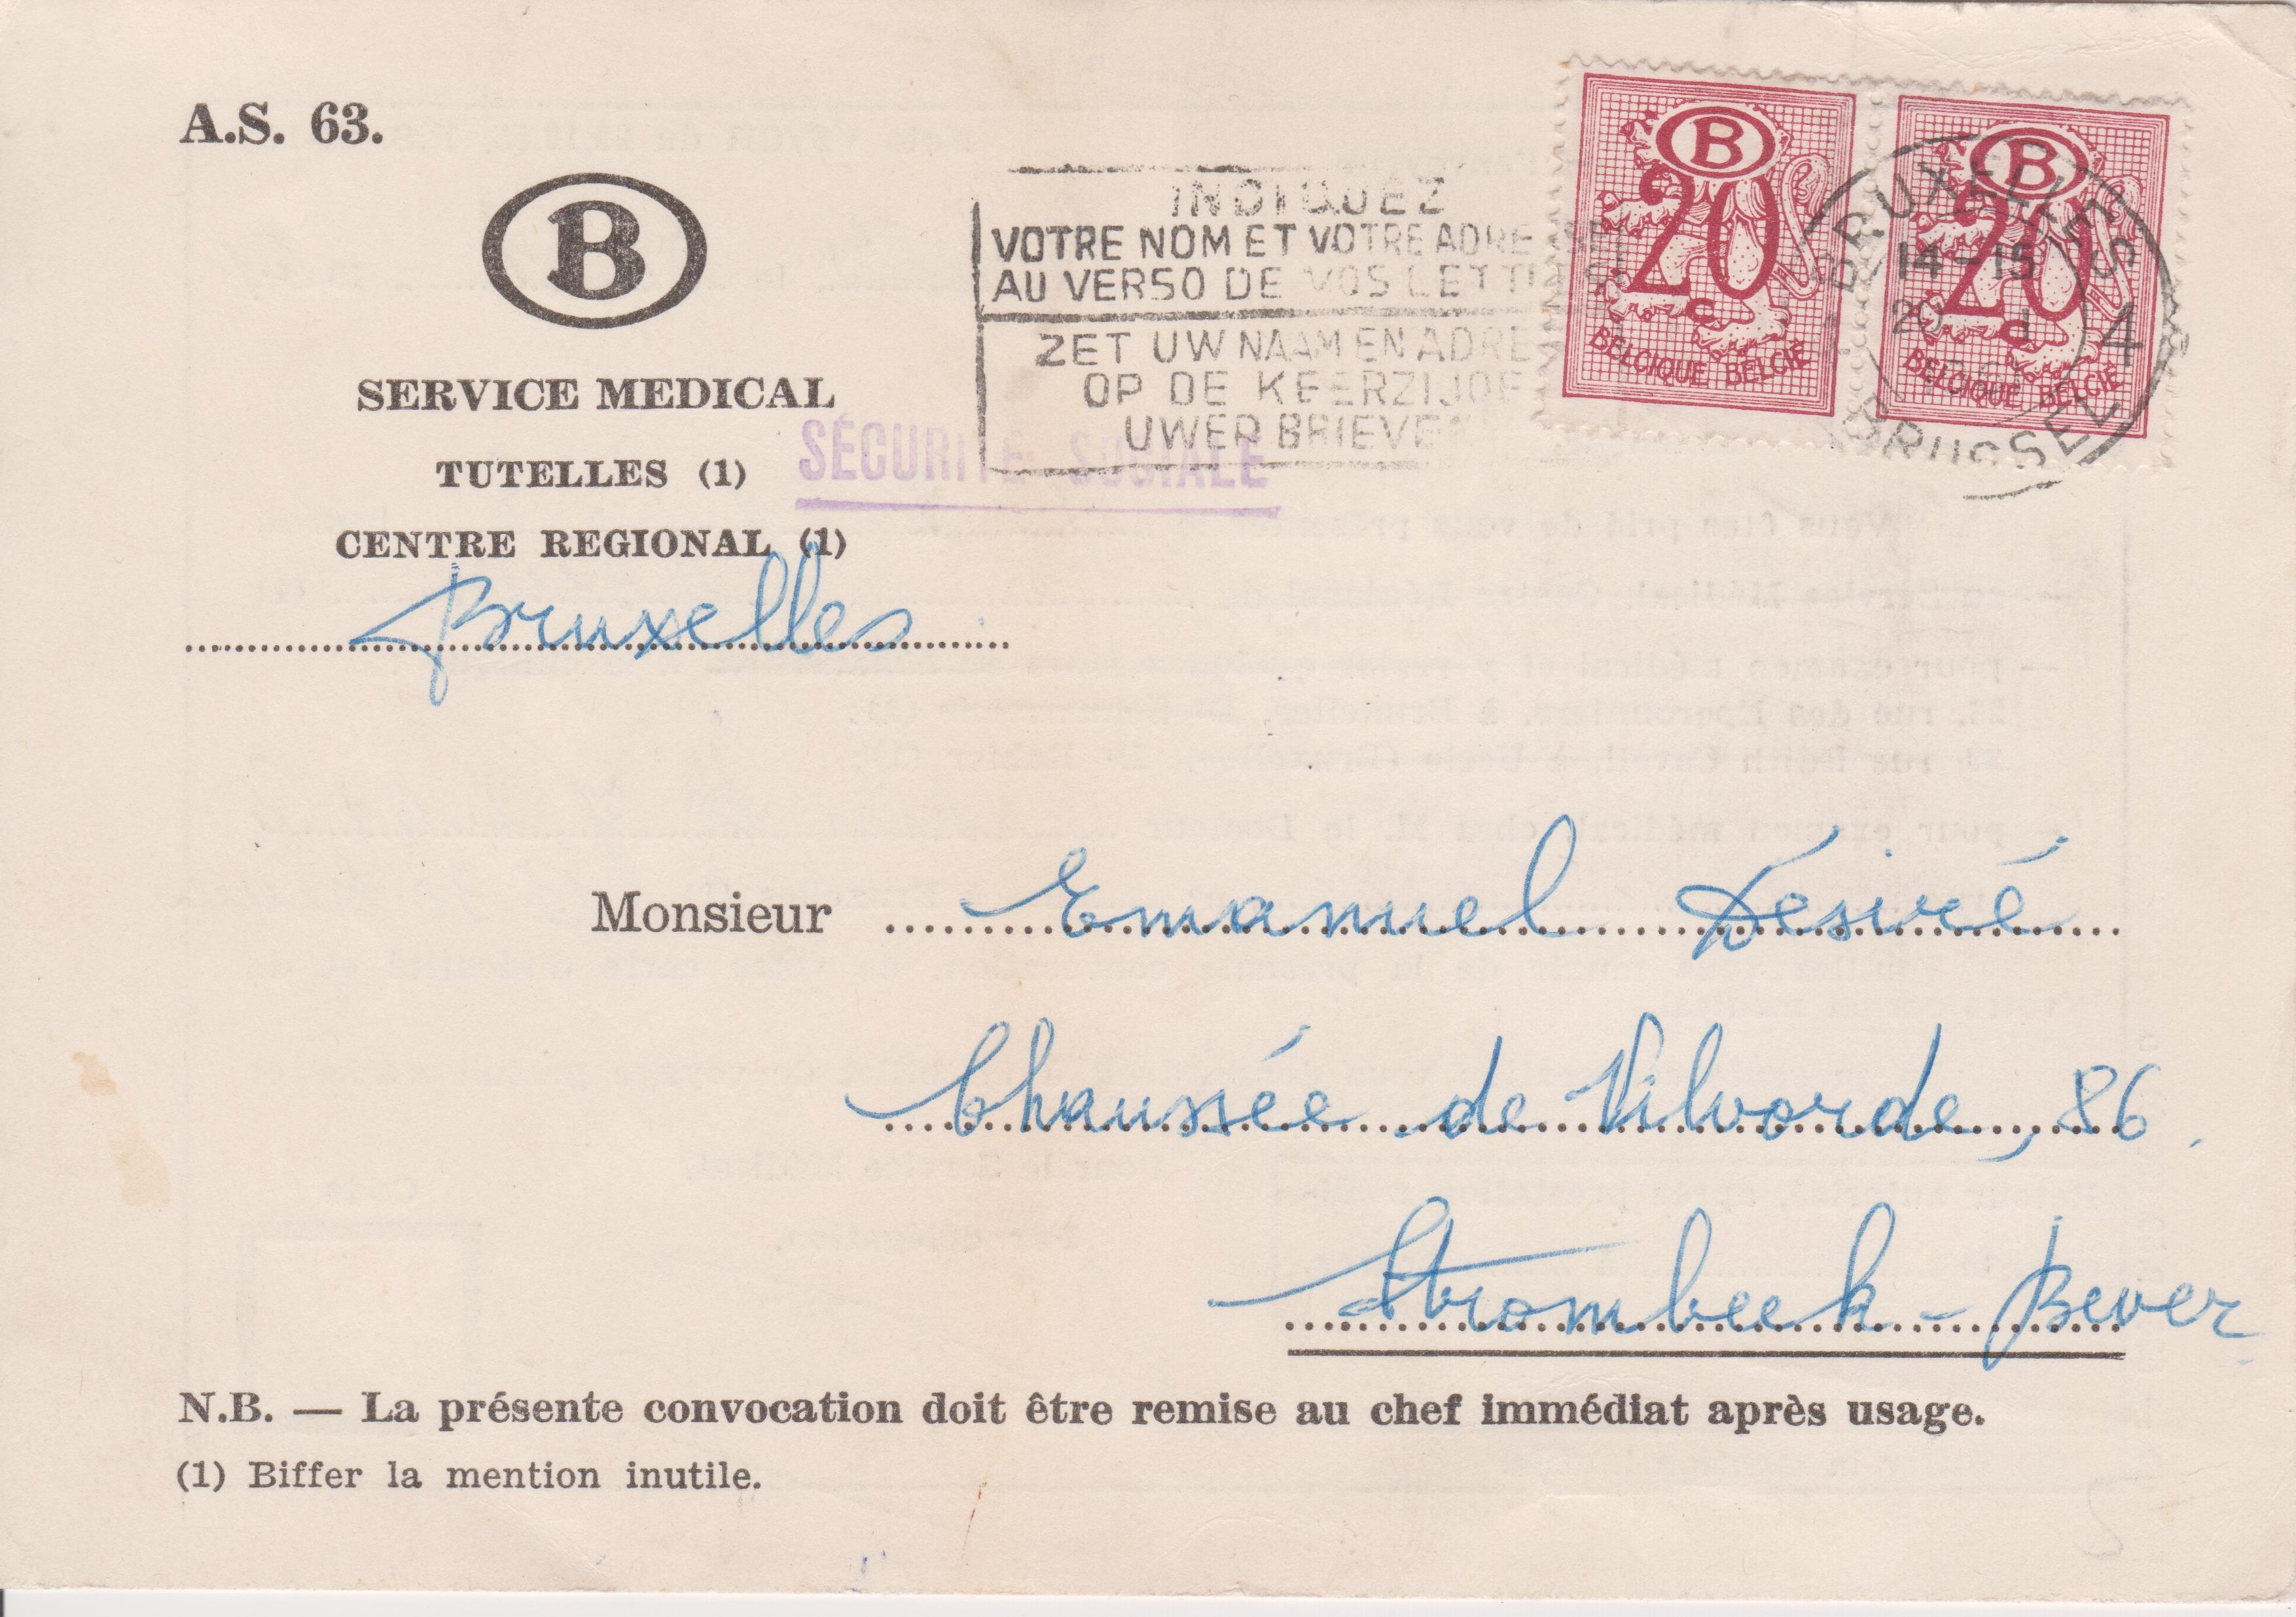 A.S. 63.
B
SERVICE MEDICAL
TUTELLES (1)
CENTRE REGIONAL (1)
Bruxelles
SÉCURITÉ SOCIALE
INDIQUEZ
VOTRE NOM ET VOTRE ADRESSE
AU VERSO DE VOS LETTRES
ZET UW NAAM EN ADRES
OP DE KEERZIJDE
UWER BRIEVEN
B
20
c
BELGIQUE BELGIË
B
20
c
BELGIQUE BELGIË
BRUXELLES 4
14-15
20 1
BRUSSEL
Monsieur Emanuel Désiré
Chaussée de Vilvorde, 86.
Strombeek-Bever
N.B. — La présente convocation doit être remise au chef immédiat après usage.
(1) Biffer la mention inutile.